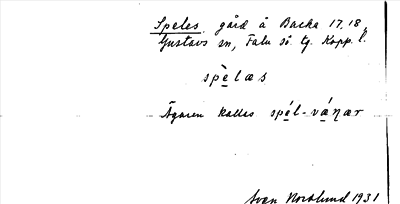 Speles gård å Backa 17, 18,
Gustavs sn, Falu sö. tg. Kopp. l.
spèlæs
Ägaren kallas spél-vánar
Sven Norlund 1931